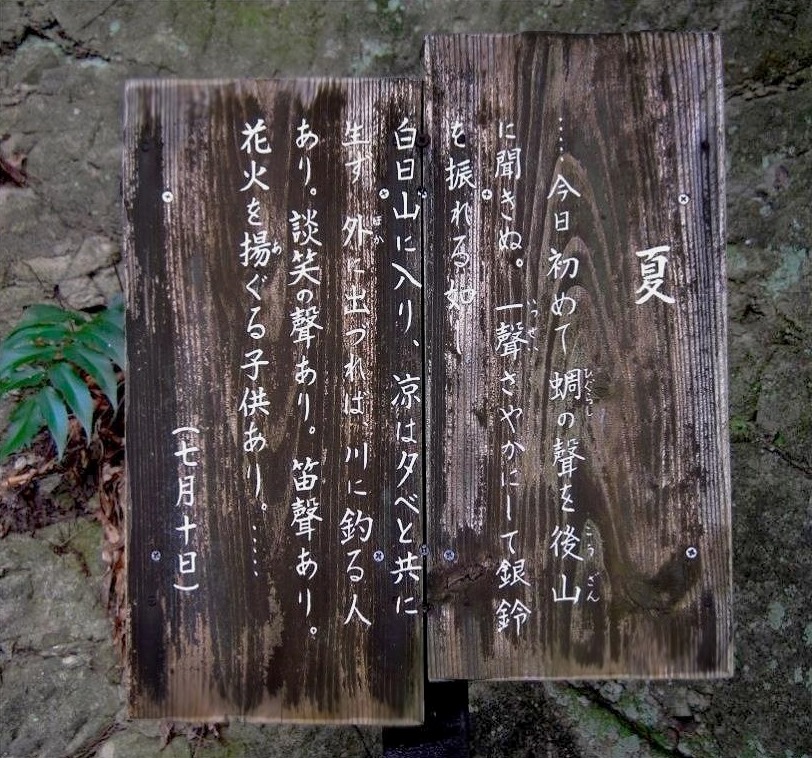 夏
……今日初めて蜩の聲を後山
に聞きぬ。一聲さやかにして銀鈴
を振れる如し
白日山に入り、凉は夕べと共に
生ず 外に出づれば、川に釣る人
あり。談笑の聲あり。笛聲あり。
花火を揚ぐる子供あり。……
(七月十日)
ひぐらし
こうざん
いっせい
ほか
あ